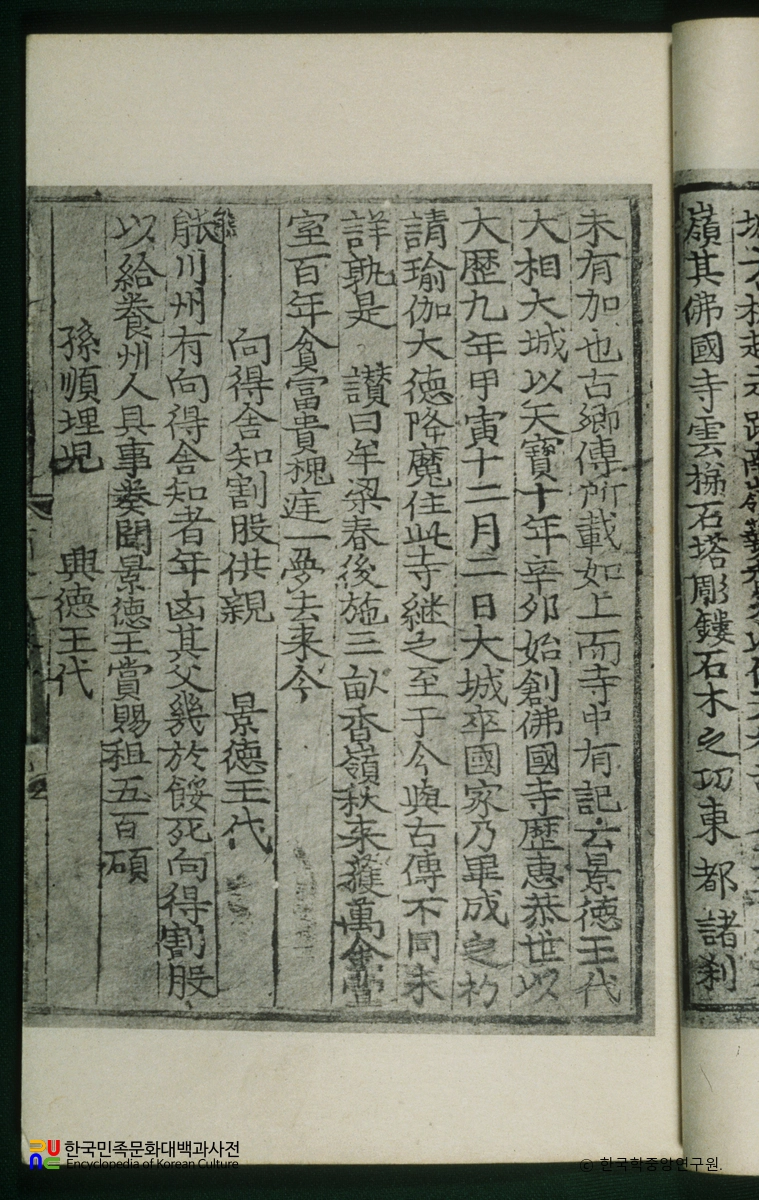 嶺其佛國寺雲梯石塔彫鏤石木之功東都諸刹
未有加也古鄉傳所載如上而寺中有記云景德王代
大相大城以天寶十年辛卯始創佛國寺歷惠恭世以
大歷九年甲寅十二月二日大城卒國家乃畢成之初
請瑜伽大德降魔住此寺継之至于今與古傳不同未
詳孰是 讃曰牟梁春後施三畝香嶺秋来獲萬金萱
室百年貧富貴槐庭一夢去来今
向得舍知割股供親 景德王代
熊川州有向得舍知者年凶其父幾於餒死向得割股
以給養州人具事奏聞景德王賞賜租五百碩
孫順埋児 興德王代
한국민족문화대백과사전
Encyclopedia of Korean Culture
© 한국학중앙연구원.